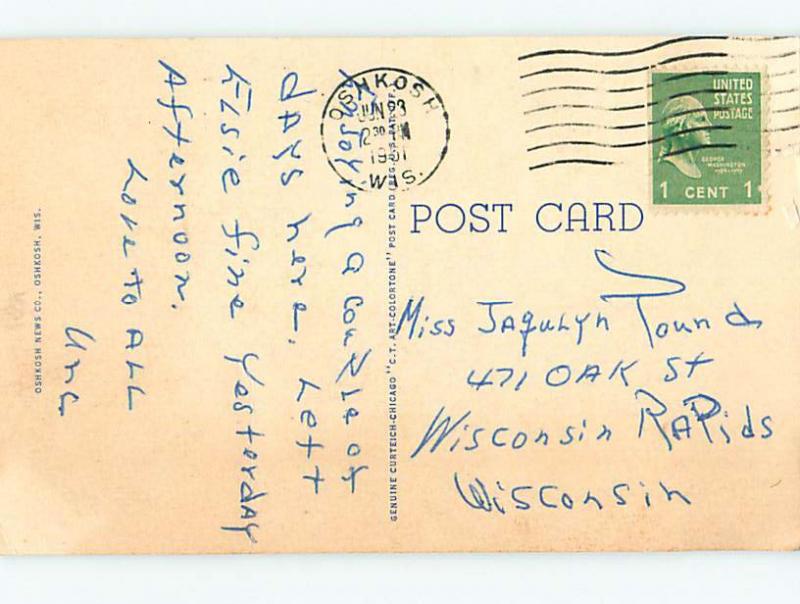 Enjoying a couple of
days here. Left
Elsie fine yesterday
Afternoon.
Love to ALL
Unc
OSHKOSH NEWS CO., OSHKOSH, WIS.
GENUINE CURTEICH-CHICAGO "C.T. ART-COLORTONE" POST CARD (REG. U.S. PAT. OFF.)
OSHKOSH
JUN 23
2 30 PM
1951
WIS.
UNITED
STATES
POSTAGE
GEORGE
WASHINGTON
1 CENT 1
POST CARD
Miss JAqulyn Pound
471 OAK St
Wisconsin RAPids
Wisconsin